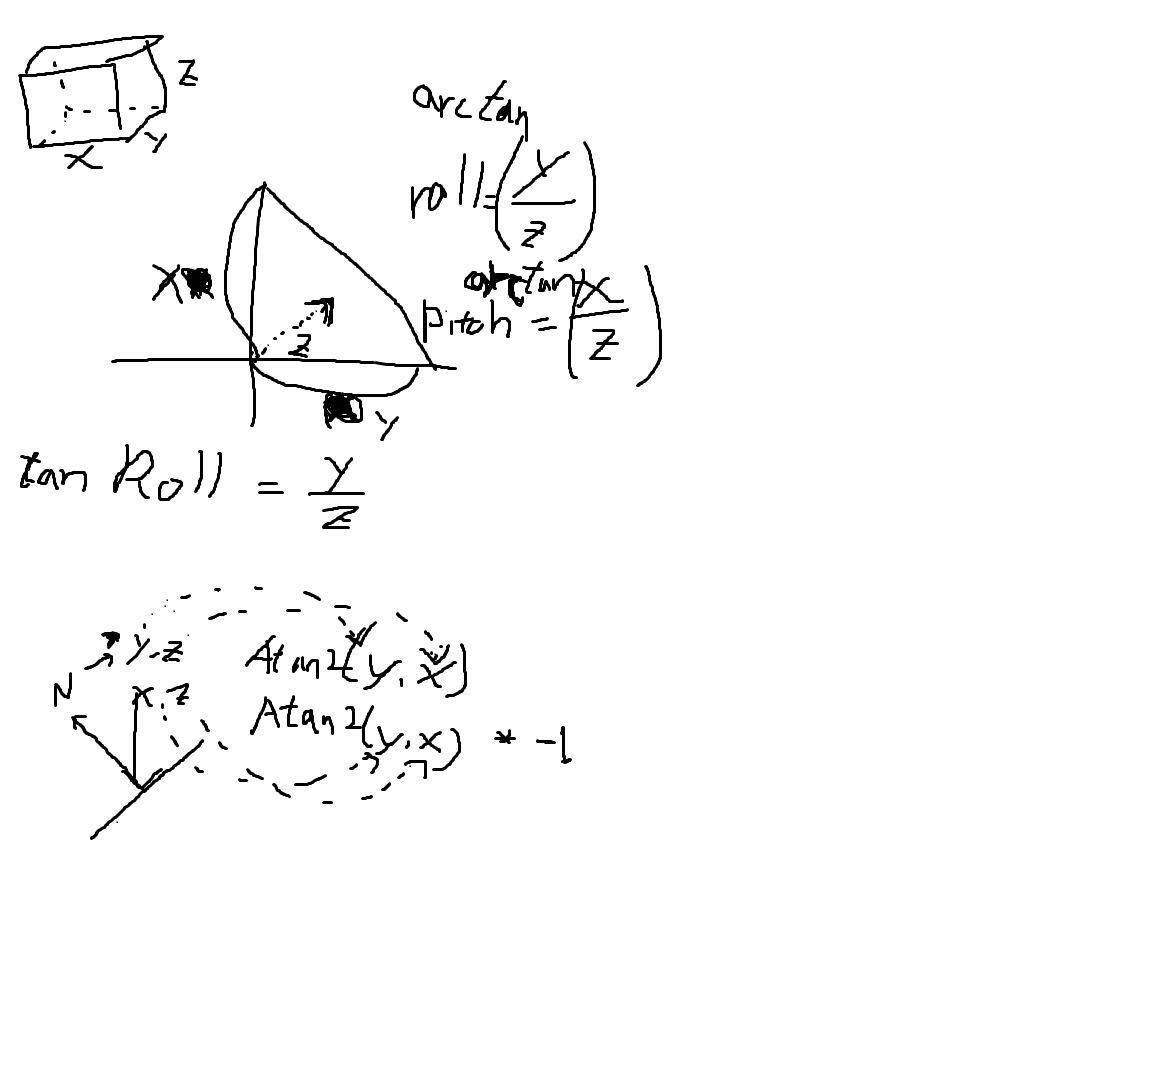 Z
Y
X
arctan
roll = (Y/Z)
X
Z
Y
arctan
Pitch = (X/Z)
tan Roll = Y/Z
Y, Z
N
X, Z
Atan2(y, x)
Atan2(y, x) * -1